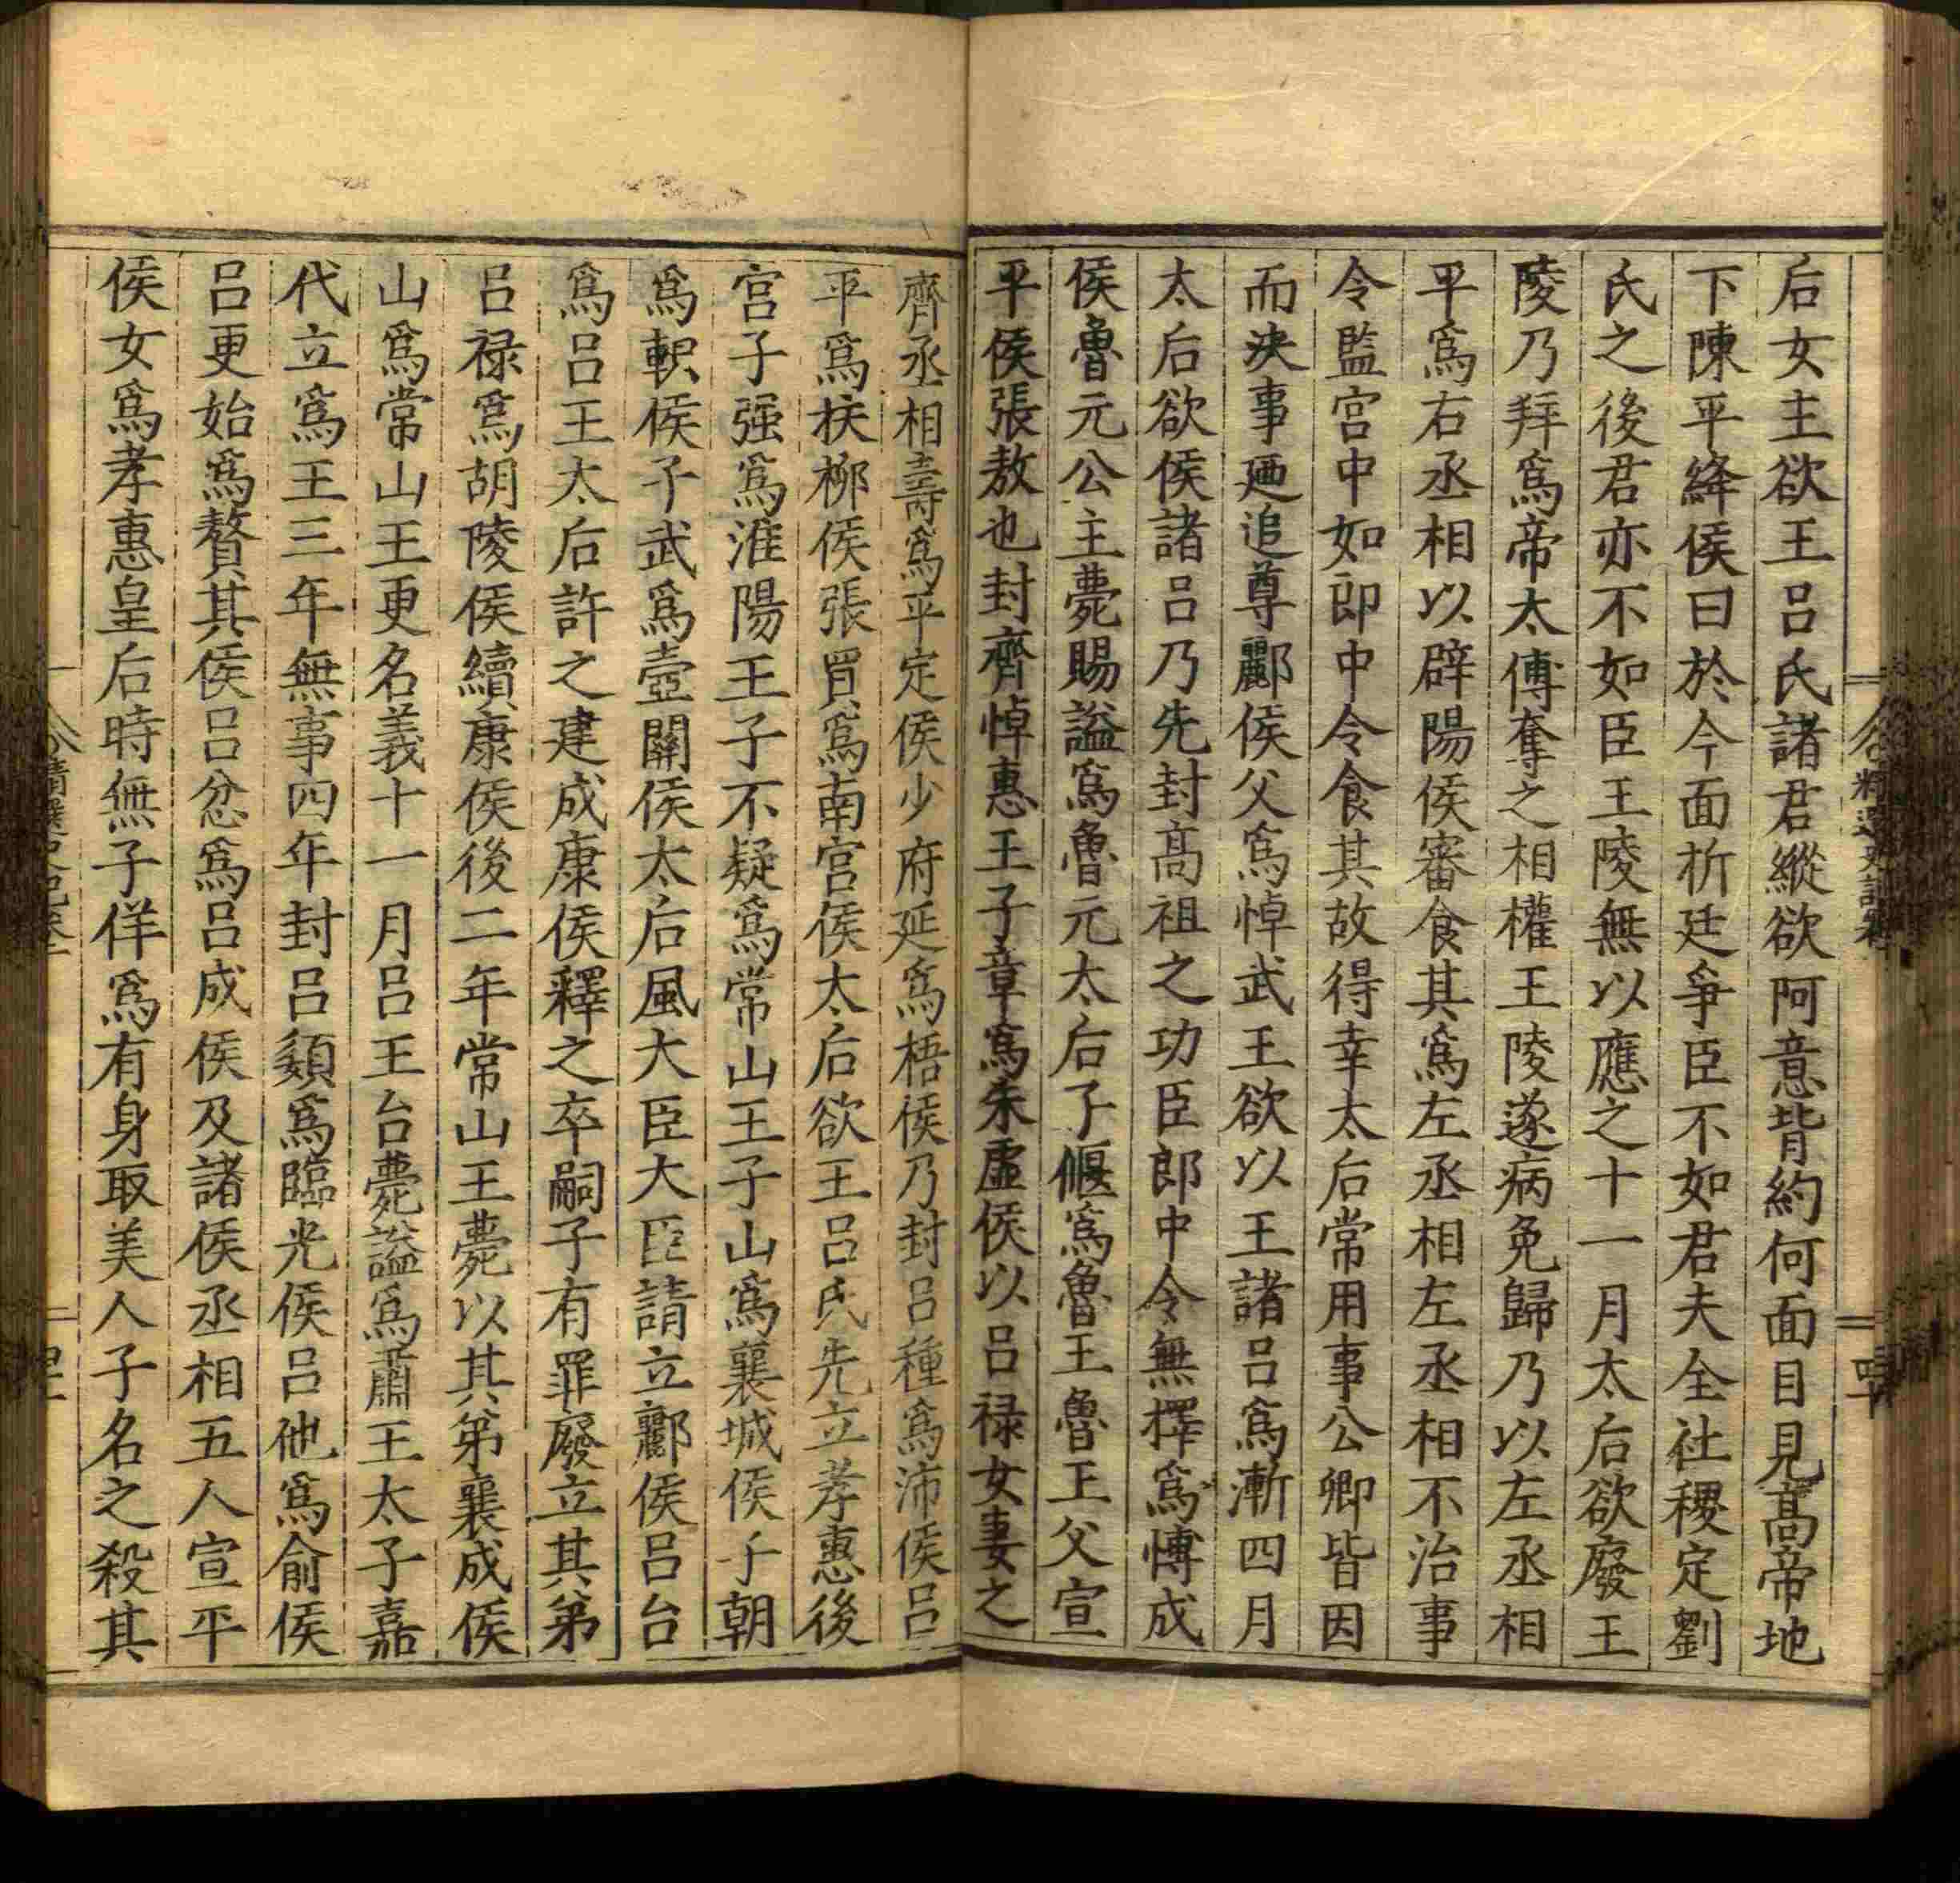 后女主欲王吕氏諸君縱欲阿意背約何面目見高帝地
下陳平絳侯曰於今面折廷爭臣不如君夫全社稷定劉
氏之後君亦不如臣王陵無以應之十一月太后欲廢王
陵乃拜爲帝太傅奪之相權王陵遂病免歸乃以左丞相
平爲右丞相以辟陽侯審食其爲左丞相左丞相不治事
令監宫中如郎中令食其故得幸太后常用事公卿皆因
而決事廼追尊酈侯父爲悼武王欲以王諸吕爲漸四月
太后欲侯諸吕乃先封高祖之功臣郎中令無擇爲博成
侯魯元公主薨賜謚爲魯元太后子偃爲魯王魯王父宣
平侯張敖也封齊悼惠王子章爲朱虛侯以吕禄女妻之
齊丞相壽爲平定侯少府延爲梧侯乃封吕種爲沛侯吕
平爲扶柳侯張買爲南宫侯太后欲王吕氏先立孝惠後
宫子强爲淮陽王子不疑爲常山王子山爲襄城侯子朝
爲軹侯子武爲壺關侯太后風大臣大臣請立酈侯吕台
爲吕王太后許之建成康侯釋之卒嗣子有罪廢立其弟
吕禄爲胡陵侯續康侯後二年常山王薨以其弟襄成侯
山爲常山王更名義十一月吕王台薨謚爲肅王太子嘉
代立爲王三年無事四年封吕嬃爲臨光侯吕他爲俞侯
吕更始爲贅其侯吕忿爲吕成侯及諸侯丞相五人宣平
侯女爲孝惠皇后時無子佯爲有身取美人子名之殺其